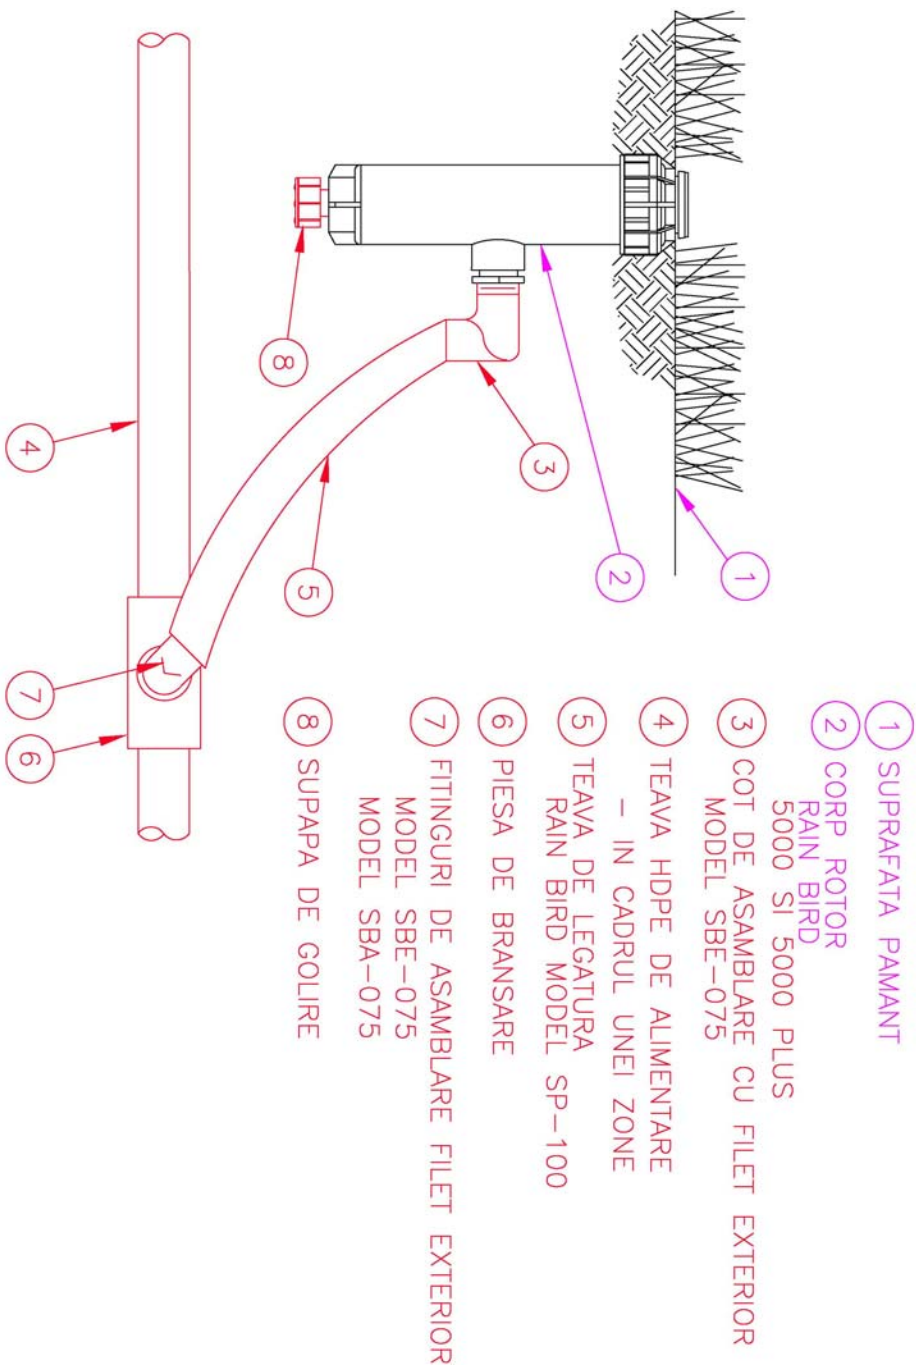 1 SUPRAFATA PAMANT
2 CORP ROTOR
RAIN BIRD
5000 SI 5000 PLUS
3 COT DE ASAMBLARE CU FILET EXTERIOR
MODEL SBE-075
4 TEAVA HDPE DE ALIMENTARE
- IN CADRUL UNEI ZONE
5 TEAVA DE LEGATURA
RAIN BIRD MODEL SP-100
6 PIESA DE BRANSARE
7 FITINGURI DE ASAMBLARE FILET EXTERIOR
MODEL SBE-075
MODEL SBA-075
8 SUPAPA DE GOLIRE
1
2
3
8
5
4
7
6